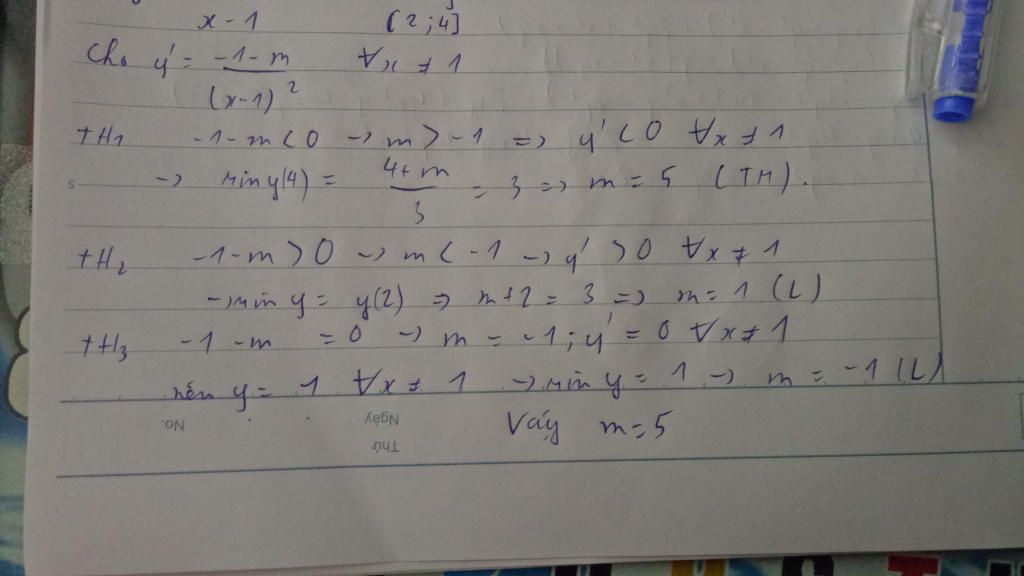 x-1 [2;4]
Cho y' = \frac{-1-m}{(x-1)^2} ∀x ≠ 1
TH1 -1-m<0 → m > -1 => y' < 0 ∀x ≠ 1
→ min y(4) = \frac{4+m}{3} = 3 => m = 5 (TM).
TH2 -1-m>0 → m < -1 → y' > 0 ∀x ≠ 1
→ min y = y(2) => m+2 = 3 => m = 1 (L)
TH3 -1-m = 0 → m = -1; y' = 0 ∀x ≠ 1
nên y = 1 ∀x ≠ 1 → min y = 1 → m = -1 (L)
Vậy m = 5
No. Ngày
Thứ
5